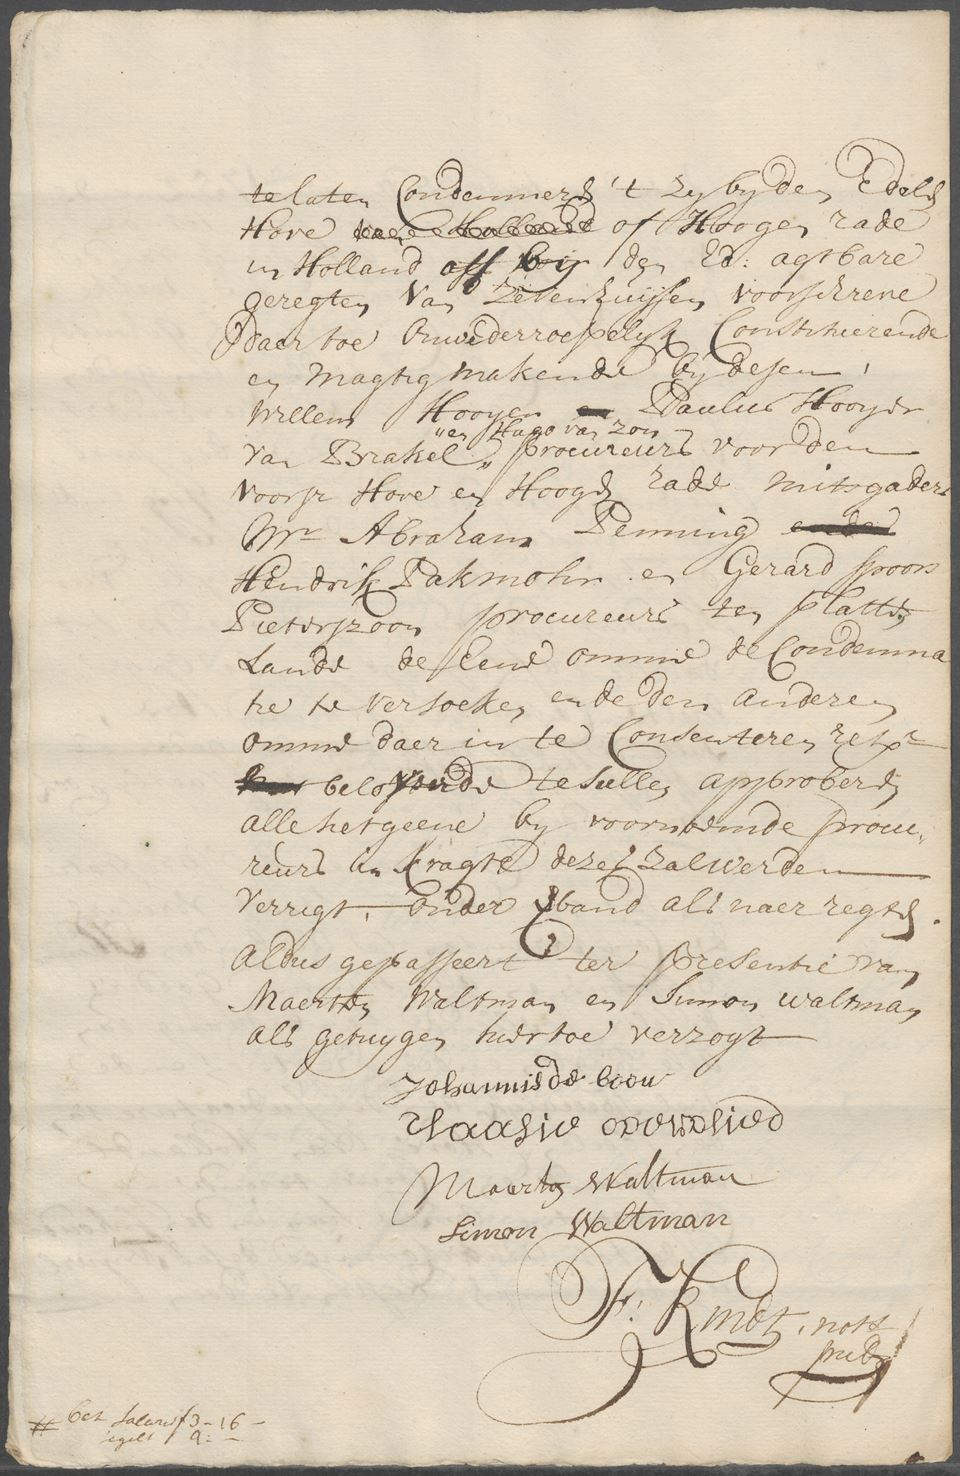 te laten Condemneren 't zy by den Edelen
Hove van Holland of Hoogen rade
in Holland off by den Ed: agtbare
geregten van Zevenhuijsen voorschreve
daer toe onwederroepelyk Constituerende
en magtig makende by desen
Willem Hooyer en Paulus Hooyer
„en Hugo van zon
van Brakel „ procureurs voor den
voorsz Hove en Hoogen rade mitsgaders
Mr Abraham Penning ende
Hendrik Pakmohr en Gerard spoors
Pieterszoon procureurs ten platten
Lande de eene omme de Condemna
tie te versoeken ende den anderen
omme daer in te Consenteren
beloovende te sullen approberen
alle hetgeene by voornoemde procu„
reurs in kragte dezes zal werden
verrigt, onder verband als naer regten.
Aldus gepasseert ter presentie van
Maerten Waltman en Simon waltman
als getuygen hier toe verzogt
Johannis de boou
Claasje overvlied
Maerten Waltman
Simon Waltman
F: Kindt, nots
pub
# bet salaris f 3-16-
segels